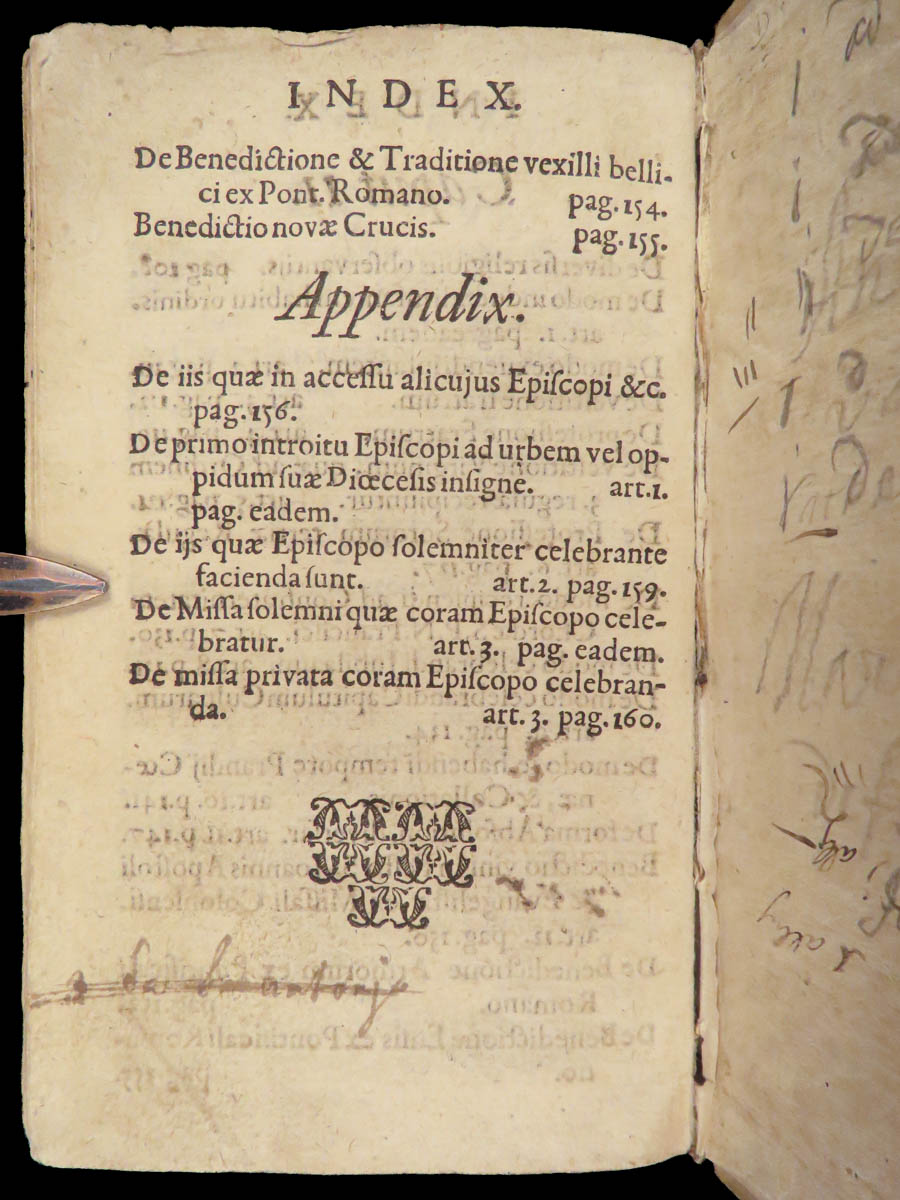 INDEX.
De Benedictione & Traditione vexilli belli-
ci ex Pont. Romano. pag. 154.
Benedictio novæ Crucis. pag. 155.
Appendix.
De iis quæ in acceſſu alicujus Epiſcopi &c.
pag. 156.
De primo introitu Epiſcopi ad urbem vel op-
pidum ſuæ Diœceſis inſigne. art. 1.
pag. eadem.
De ijs quæ Epiſcopo ſolemniter celebrante
facienda ſunt. art. 2. pag. 159.
De Miſſa ſolemni quæ coram Epiſcopo cele-
bratur. art. 3. pag. eadem.
De miſſa privata coram Epiſcopo celebran-
da. art. 3. pag. 160.